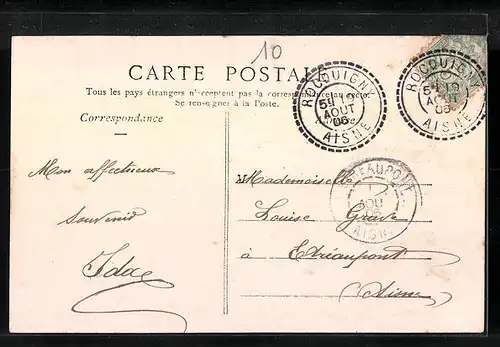 10
CARTE POSTALE
Tous les pays étrangers n'acceptent pas la correspondance au recto.
Se renseigner à la Poste.
Correspondance
ROCQUIGNY
AOUT
06
AISNE
ROCQUIGNY
06
AISNE
Mon affectueux
souvenir
Ida
Mademoiselle
Louise
à Etréaupont
(Aisne
AOU
06
AISNE